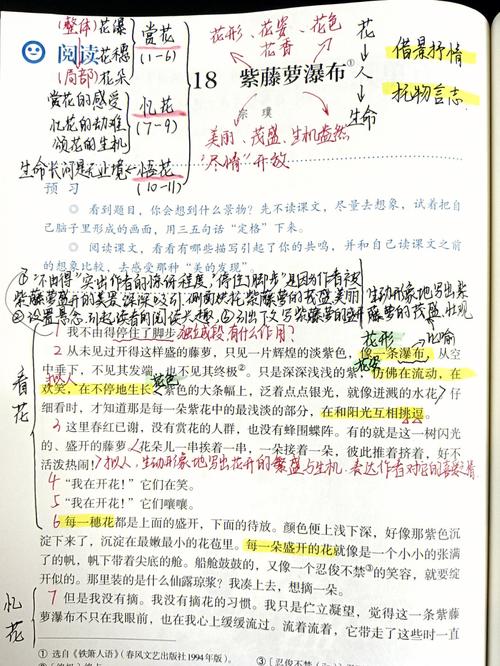 (整体)花瀑 赏花 花形、花姿、花色 花
阅读 花穗 (1-6) 花香 ↓ 借景抒情
(局部)花朵 18 紫藤萝瀑布① 人
赏花的感受 忆花 宗 璞 ↓ 托物言志
忆花的劫难 (7-9) 美丽、茂盛、生机盎然 生命
颂花的生机 "尽情"开放
生命长河是无止境←悟花
(10-11)
预 习
◎ 看到题目,你会想到什么景物?先不读课文,尽量去想象,试着把自
己脑子里形成的画面,用三五句话"定格"下来。
◎ 阅读课文,看看有哪些描写引起了你的共鸣,并和自己读课文之前
的想象比较,去感受那种"美的发现"。
①"不由得"突出作者的惊讶程度,"停住了脚步"是因为作者被
紫藤萝盛开的美景深深吸引,侧面烘托紫藤萝的茂盛美丽
②设置悬念,引起读者的阅读兴趣
③引出下文写紫藤萝的
生动形象地写出紫
藤萝的茂盛、壮观
1 我不由得停住了脚步。独立成段有什么作用?
花形 比喻
2 从未见过开得这样盛的藤萝,只见一片辉煌的淡紫色,像一条瀑布,从空
中垂下,不见其发端,也不见其终极②。只是深深浅浅的紫,仿佛在流动,在
拟人
欢笑,在不停地生长。紫色的大条幅上,泛着点点银光,就像迸溅的水花。仔
细看时,才知道那是每一朵紫花中的最浅淡的部分,在和阳光互相挑逗。
看花
3 这里春红已谢,没有赏花的人群,也没有蜂围蝶阵。有的就是这一树闪光
的、盛开的藤萝。花朵儿一串挨着一串,一朵接着一朵,彼此推着挤着,好不
活泼热闹!拟人,生动形象地写出花开的繁盛与生机,表达作者对它的喜爱之情
4 "我在开花!"它们在笑。
5 "我在开花!"它们嚷嚷。
6 每一穗花都是上面的盛开,下面的待放。颜色便上浅下深,好像那紫色沉
淀下来了,沉淀在最嫩最小的花苞里。每一朵盛开的花就像是一个小小的张满
了的帆,帆下带着尖底的舱。船舱鼓鼓的,又像一个忍俊不禁③的笑容,就要绽
开似的。那里装的是什么仙露琼浆?我凑上去,想摘一朵。
忆花
7 但是我没有摘。我没有摘花的习惯。我只是伫立凝望,觉得这一条紫藤
萝瀑布不只在我眼前,也在我心上缓缓流过。流着流着,它带走了这些时一直
① 选自《铁箫人语》(春风文艺出版社1994年版)。 ③〔忍俊不禁